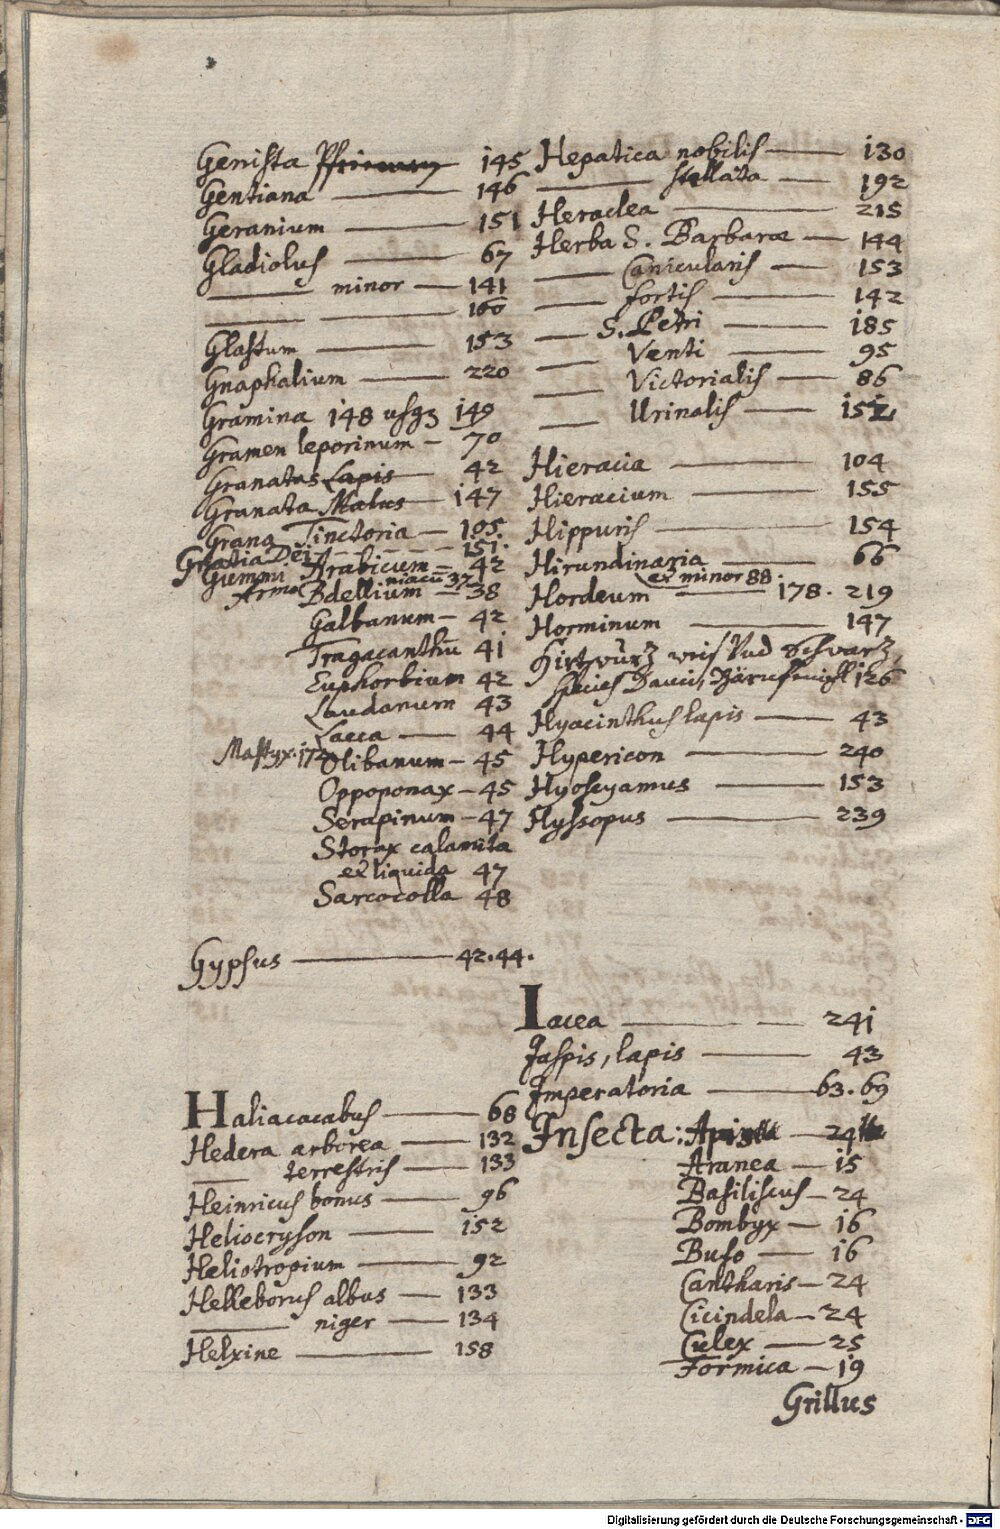 Genista Pfriemen 145
Gentiana — 146
Geranium — 151
Gladiolus — 67
— minor — 141
— — 160
Glastum — 153
Gnaphalium — 220
Gramina 148 usqз 149
Gramen leporinum — 70
Granatas Lapis — 42
Granata Malus — 147
Grana Tinctoria — 105
Gratia Dei - - - - - 151.
Gummi Arabicum = 42
Armoniacū 37
Bdellium — 38
Galbanum — 42
Tragacanthū 41
Euphorbium 42
Laudanum 43
Lacca — 44
Mastyx. 172
Olibanum — 45
Oppoponax — 45
Serapinum — 47
Storax calamita
et liquida 47
Sarcocolla 48
Gypsus — 42.44.
Haliacacabus — 68
Hedera arborea — 132
— terrestris — 133
Heinricus bonus — 96
Heliocryson — 152
Heliotropium — 92
Helleborus albus — 133
— niger — 134
Helxine — 158
Hepatica nobilis — 130
— stellata — 192
Heraclea — 215
Herba S. Barbaræ — 144
— Canicularis — 153
— fortis — 142
— S. Petri — 185
— Venti — 95
— Victorialis — 86
— Urinalis — 152
Hieracia — 104
Hieracium — 155
Hippuris — 154
Hirundinaria — 66
et minor 88.
Hordeum — 178. 219
Horminum — 147
Hirtzwurz weis Vnd Schwartz,
species Dauci, 126
Hyacinthus lapis — 43
Hypericon — 240
Hyoscyamus — 153
Hyssopus — 239
Iacea — — 241
Jaspis, lapis — 43
Imperatoria — 63.69
Insecta: Apis — 24
Aranea — 15
Basiliscus — 24
Bombyx — 16
Bufo — 16
Cantharis — 24
Cicindela — 24
Culex — 25
Formica — 19
Grillus
Digitalisierung gefördert durch die Deutsche Forschungsgemeinschaft - DFG